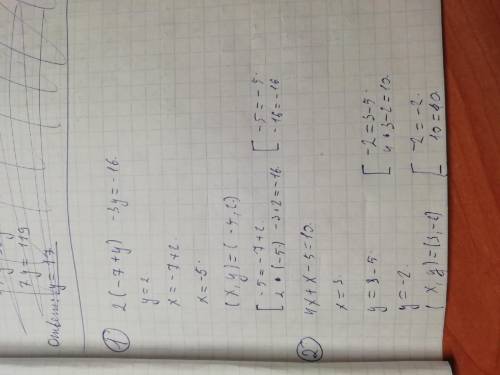 7y = 119
Ответ: y = 17
1
2(-7+y) -3y = -16.
y = 2
x = -7+2
x = -5.
(x,y) = (-5,2)
[ -5 = -7+2
2•(-5) -3•2 = -16.
[ -5 = -5.
-16 = -16
2
4x+x-5 = 10.
x = 3.
y = 3-5.
y = -2.
[ -2 = 3-5.
4•3-2 = 10.
(x,y) = (3,-2)
[ -2 = -2.
10 = 10.